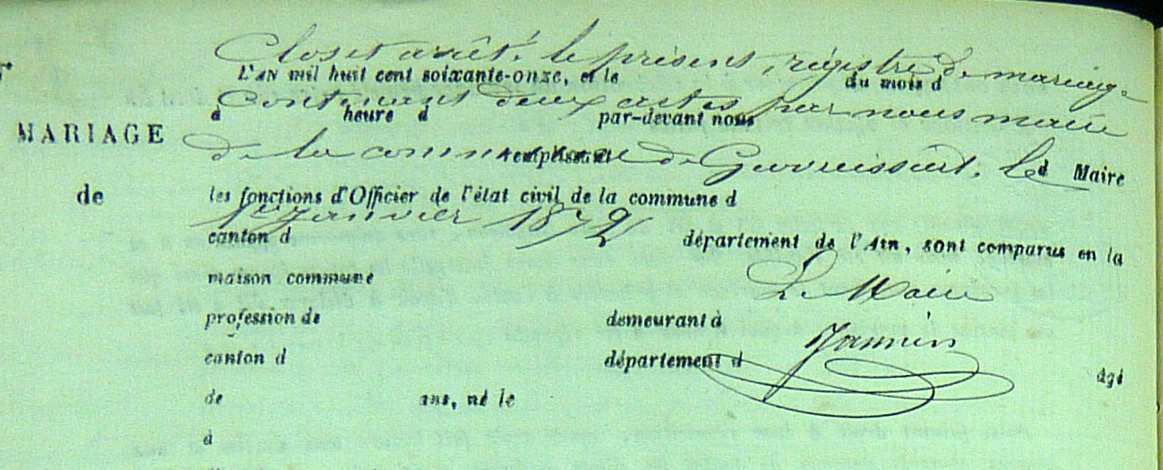 Clos et arrêté le présent régistre de mariage
L'AN mil huit cent soixante-onze, et le du mois d
Contenant deux actes par nous maire
à heure d par-devant nous
MARIAGE
de la commune de Guvreissiat. le
remplissant d Maire
de
les fonctions d'Officier de l'état civil de la commune d
1er Janvier 1872
canton d département de l'Ain, sont comparus en la
maison commune
Le Maire
profession de demeurant à
Jannin
canton d département d âgé
de ans, né le
à